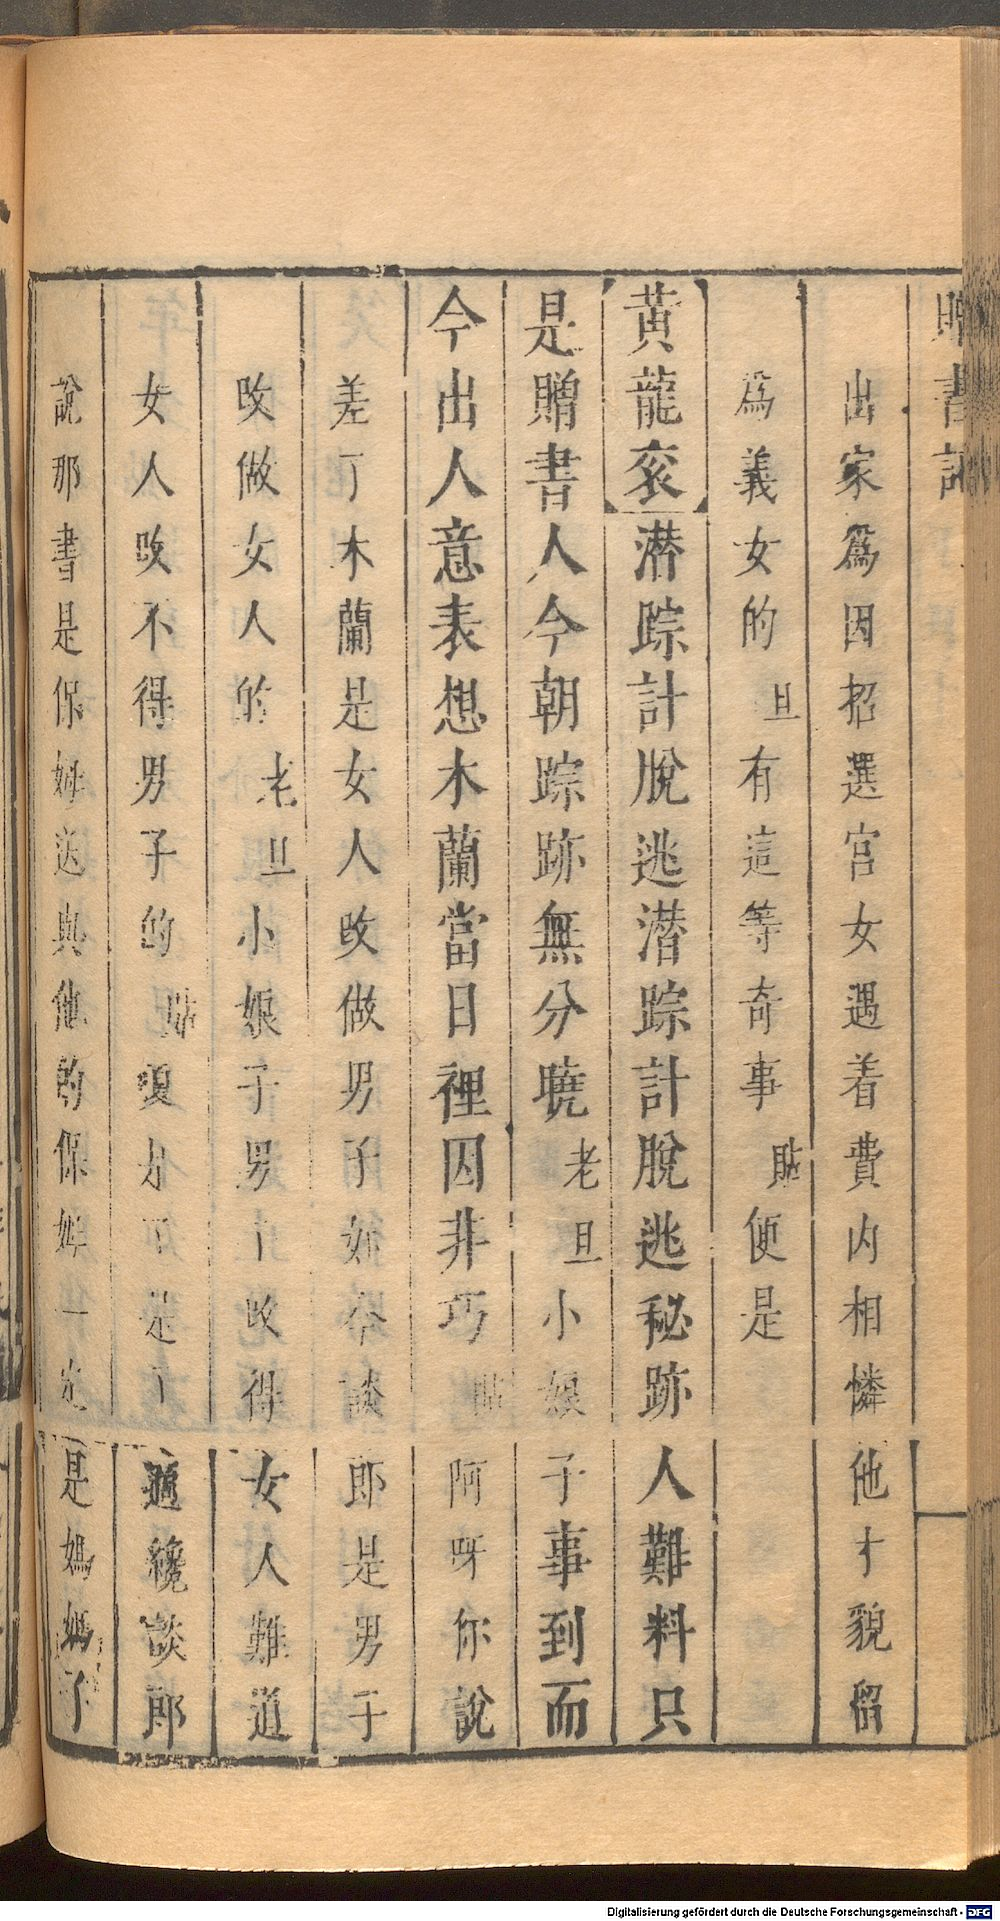 贈書記
出家爲因招選宮女遇着費内相憐他才貌留
爲義女的旦有這等奇事貼便是
黃龍衮潜踪計脫逃潜踪計脫逃秘跡人難料只
是贈書人今朝踪跡無分曉老旦小娘子事到而
今出人意表想木蘭當日裡囚非巧貼阿呀你說
差了木蘭是女人改做男子如今談郎是男子
改做女人的老旦小娘子男子改得女人難道
女人改不得男子的貼夏才丁是丁適纔談郎
說那書是保姆送與他的保姆一定是媽媽了
Digitalisierung gefördert durch die Deutsche Forschungsgemeinschaft - DFG